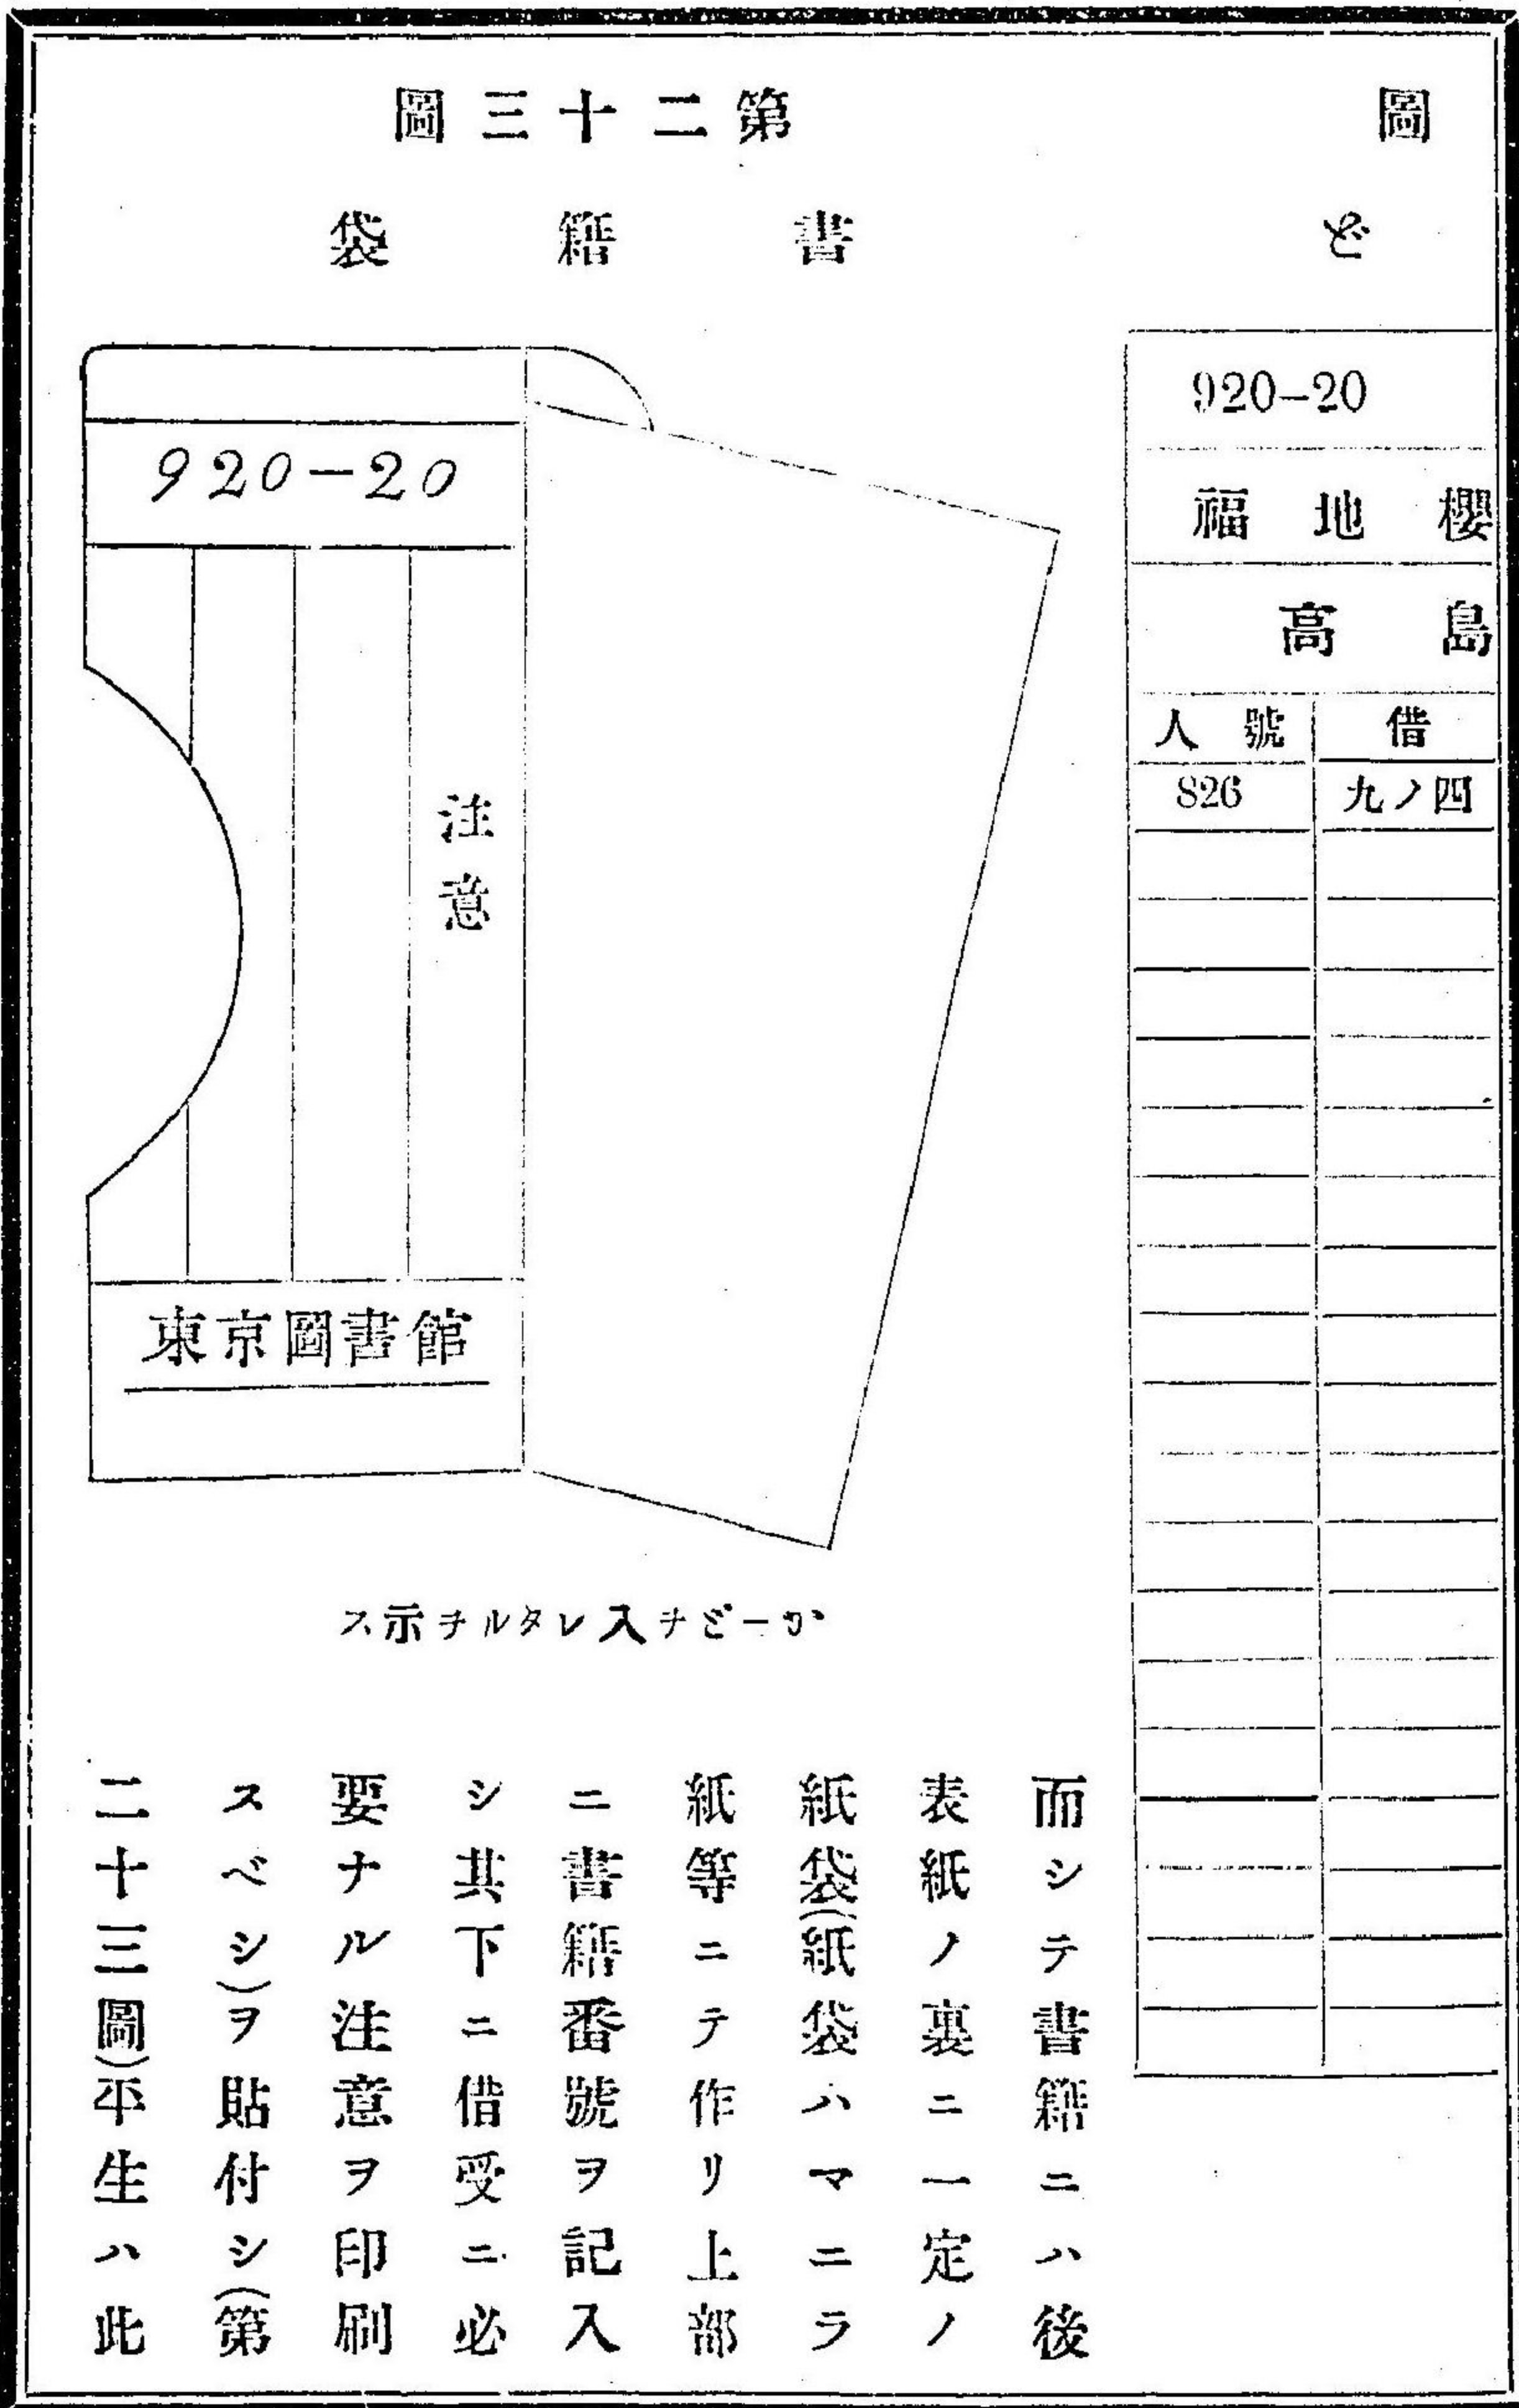 圖
ど
920-20
福地櫻
高島
人號 借
826 九ノ四
第二十三圖
書籍袋
920-20
注意
東京圖書館
かーどヲ入レタルヲ示ス
而シテ書籍ニハ後
表紙ノ裏ニ一定ノ
紙袋(紙袋ハマニラ
紙等ニテ作リ上部
ニ書籍番號ヲ記入
シ其下ニ借受ニ必
要ナル注意ヲ印刷
スベシ)ヲ貼付シ(第
二十三圖)平生ハ此